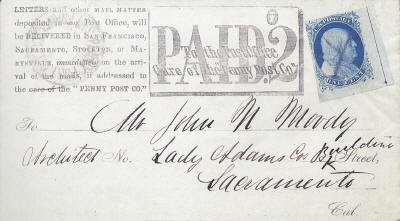 LETTERS and other MAIL MATTER
deposited in our Post Office, will
be DELIVERED in SAN FRANCISCO,
SACRAMENTO, STOCKTON, or MA-
RYSVILLE, immediately on the arri-
val of the mails, if addressed to
the care of the "PENNY POST CO."
PAID 7
To the Post Office
Care of the Penny Post Co.
To Mr John N Moody
Architect No. Lady Adams Cos Building Street,
Sacramento
Cal.